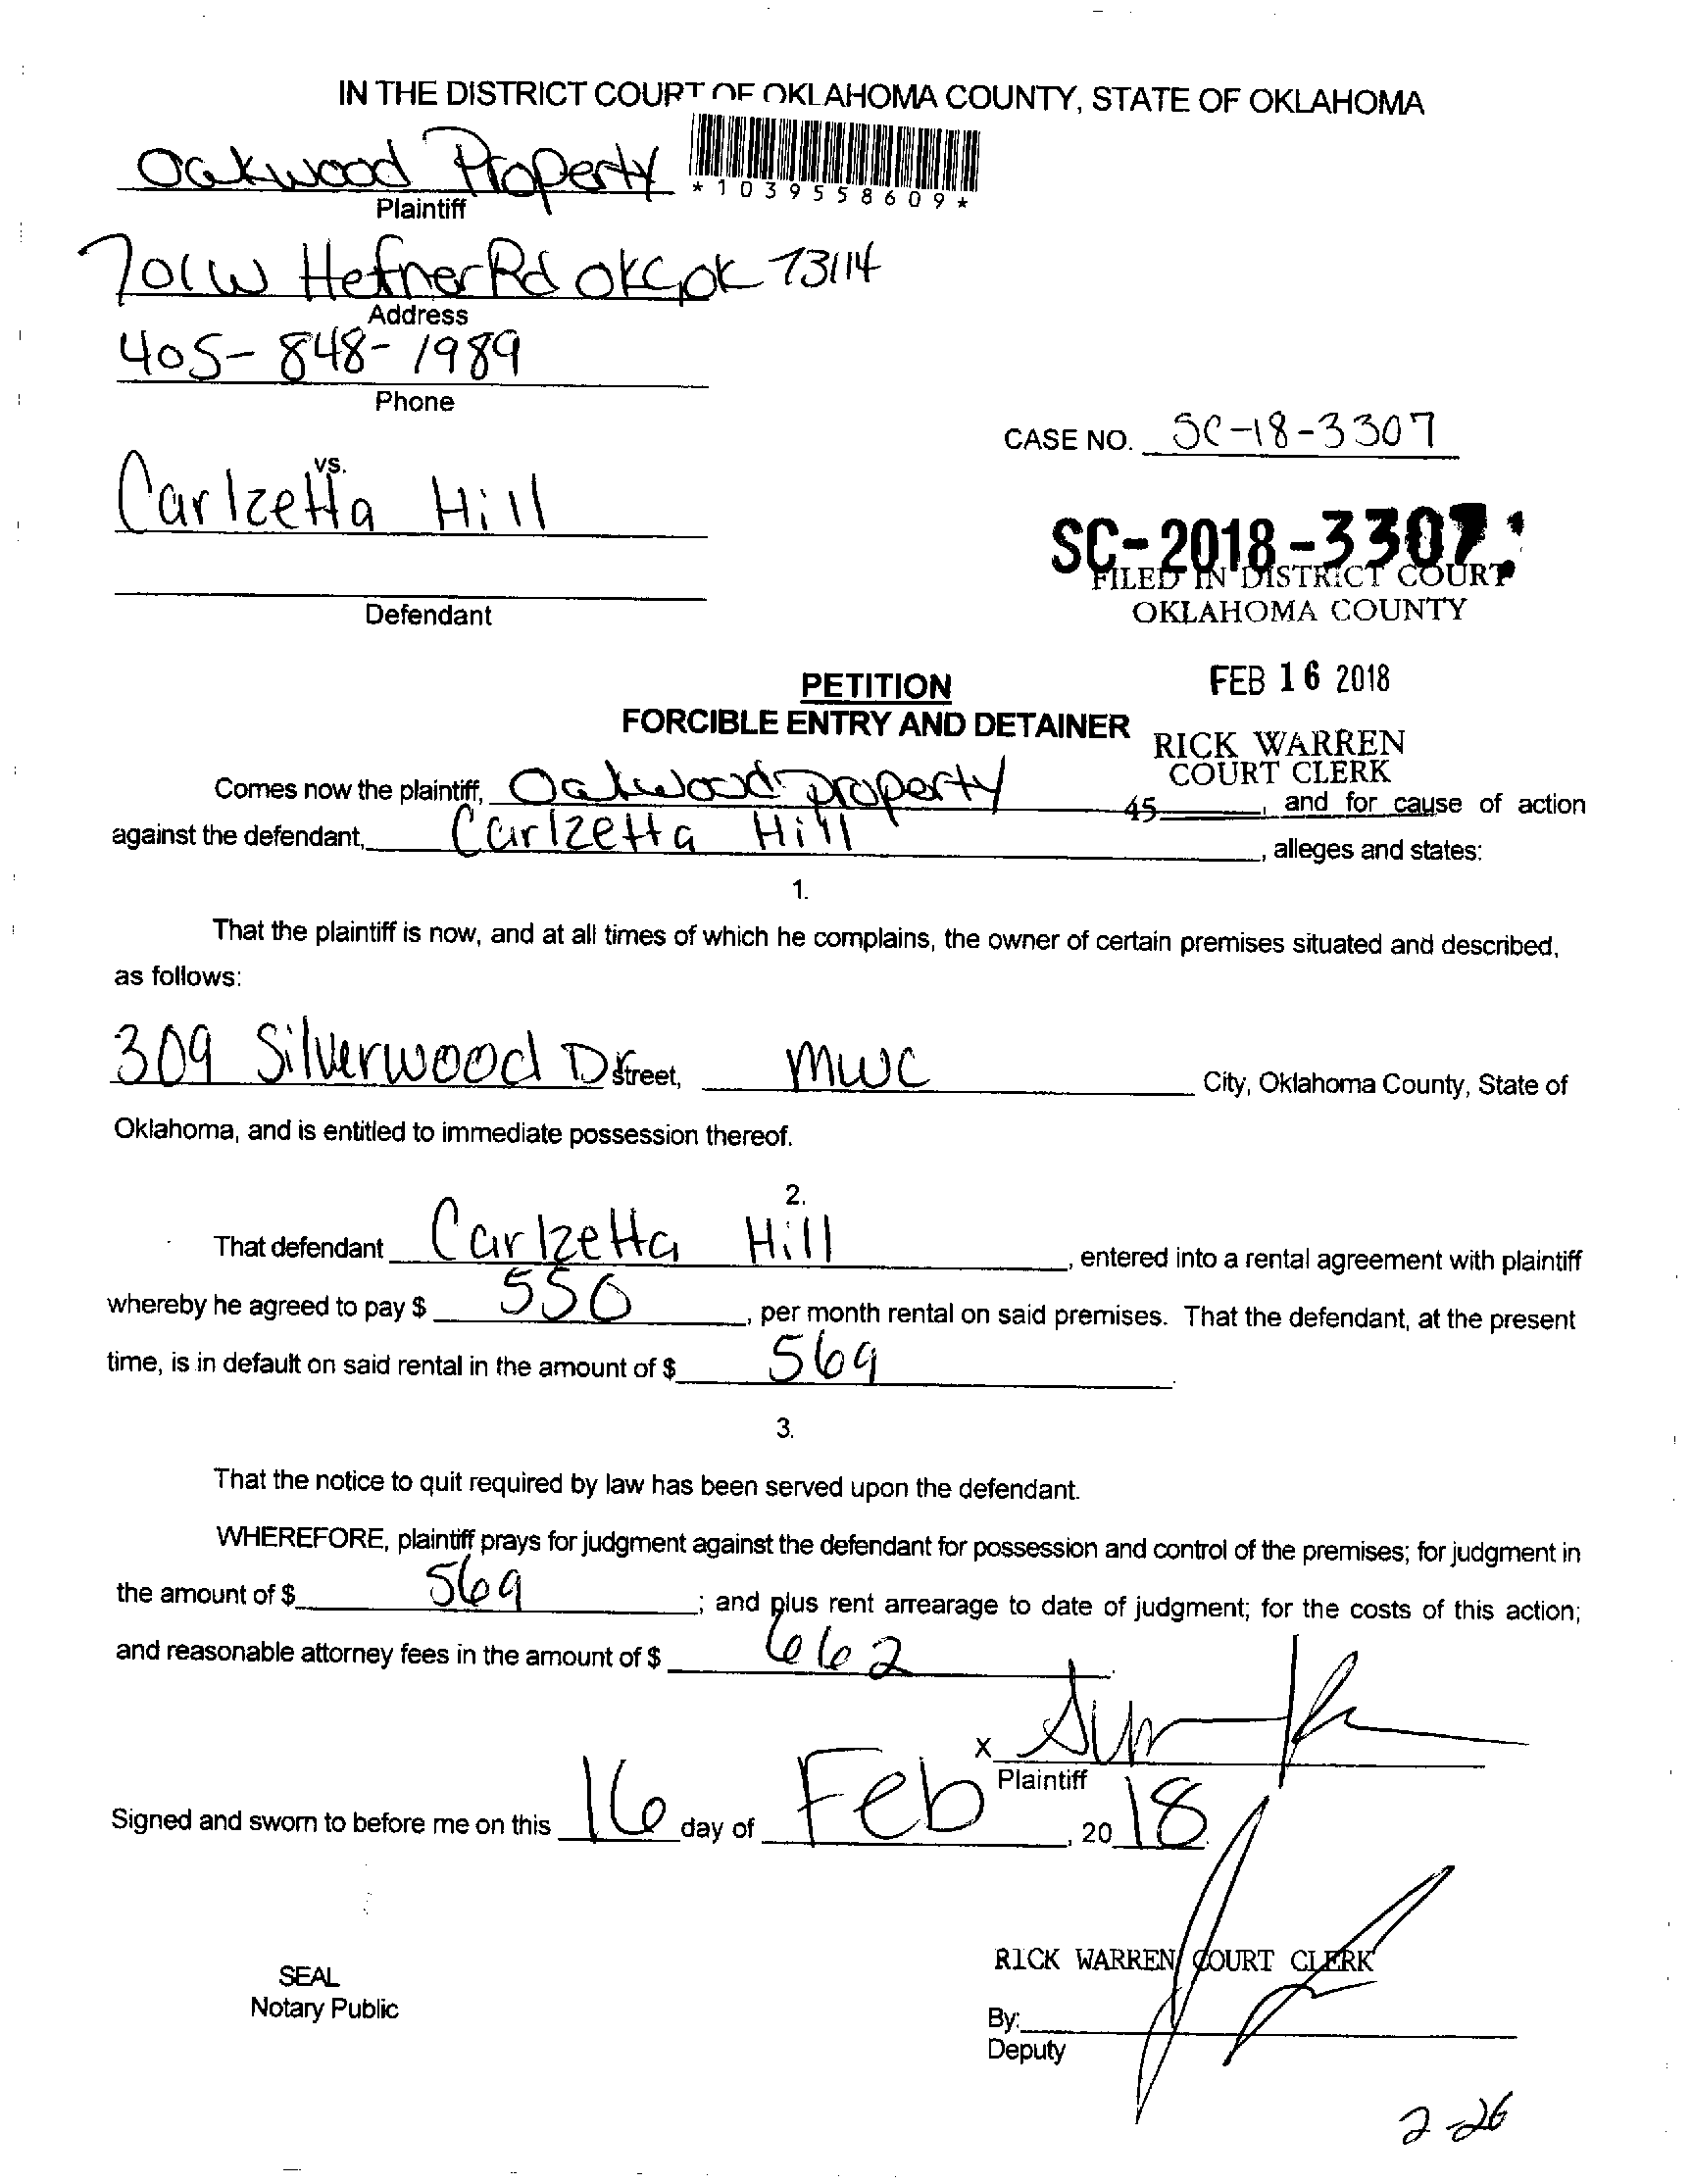 IN THE DISTRICT COURT OF OKLAHOMA COUNTY, STATE OF OKLAHOMA
Oakwood Property
*1039558609*
Plaintiff
701 W Hefner Rd OKC, OK 73114
Address
405-848-1989
Phone
CASE NO. SC-18-3307
vs.
Carlzetta Hill
SC-2018-3307
FILED IN DISTRICT COURT
OKLAHOMA COUNTY
Defendant
FEB 16 2018
PETITION
FORCIBLE ENTRY AND DETAINER
RICK WARREN
COURT CLERK
Comes now the plaintiff, Oakwood property 45 , and for cause of action
against the defendant, Carlzetta Hill , alleges and states:
1.
That the plaintiff is now, and at all times of which he complains, the owner of certain premises situated and described,
as follows:
309 Silverwood D Street, MWC City, Oklahoma County, State of
Oklahoma, and is entitled to immediate possession thereof.
2.
That defendant Carlzetta Hill , entered into a rental agreement with plaintiff
whereby he agreed to pay $ 550 , per month rental on said premises. That the defendant, at the present
time, is in default on said rental in the amount of $ 569
3.
That the notice to quit required by law has been served upon the defendant.
WHEREFORE, plaintiff prays for judgment against the defendant for possession and control of the premises; for judgment in
the amount of $ 569 ; and plus rent arrearage to date of judgment; for the costs of this action;
and reasonable attorney fees in the amount of $ 662
X
Plaintiff
Signed and sworn to before me on this 16 day of Feb , 20 18
RICK WARREN COURT CLERK
SEAL
Notary Public
By:
Deputy
2-26